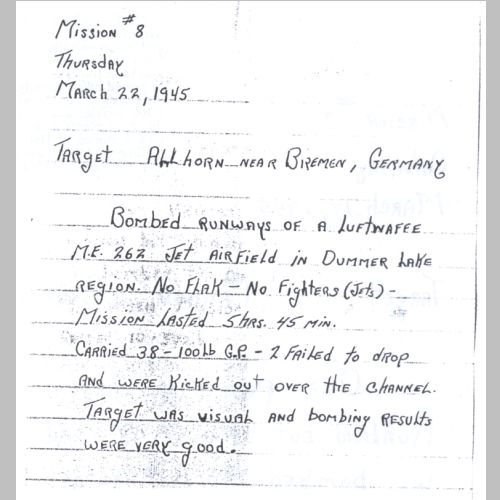 Mission #8
Thursday
March 22, 1945
Target Allhorn near Bremen, Germany
Bombed runways of a Luftwaffe
M.E. 262 Jet airfield in Dummer Lake
region. No Flak - No Fighters (Jets) -
Mission lasted 5 hrs. 45 min.
Carried 38 - 100 lb G.P. - 2 failed to drop
and were kicked out over the channel.
Target was visual and bombing results
were very good.